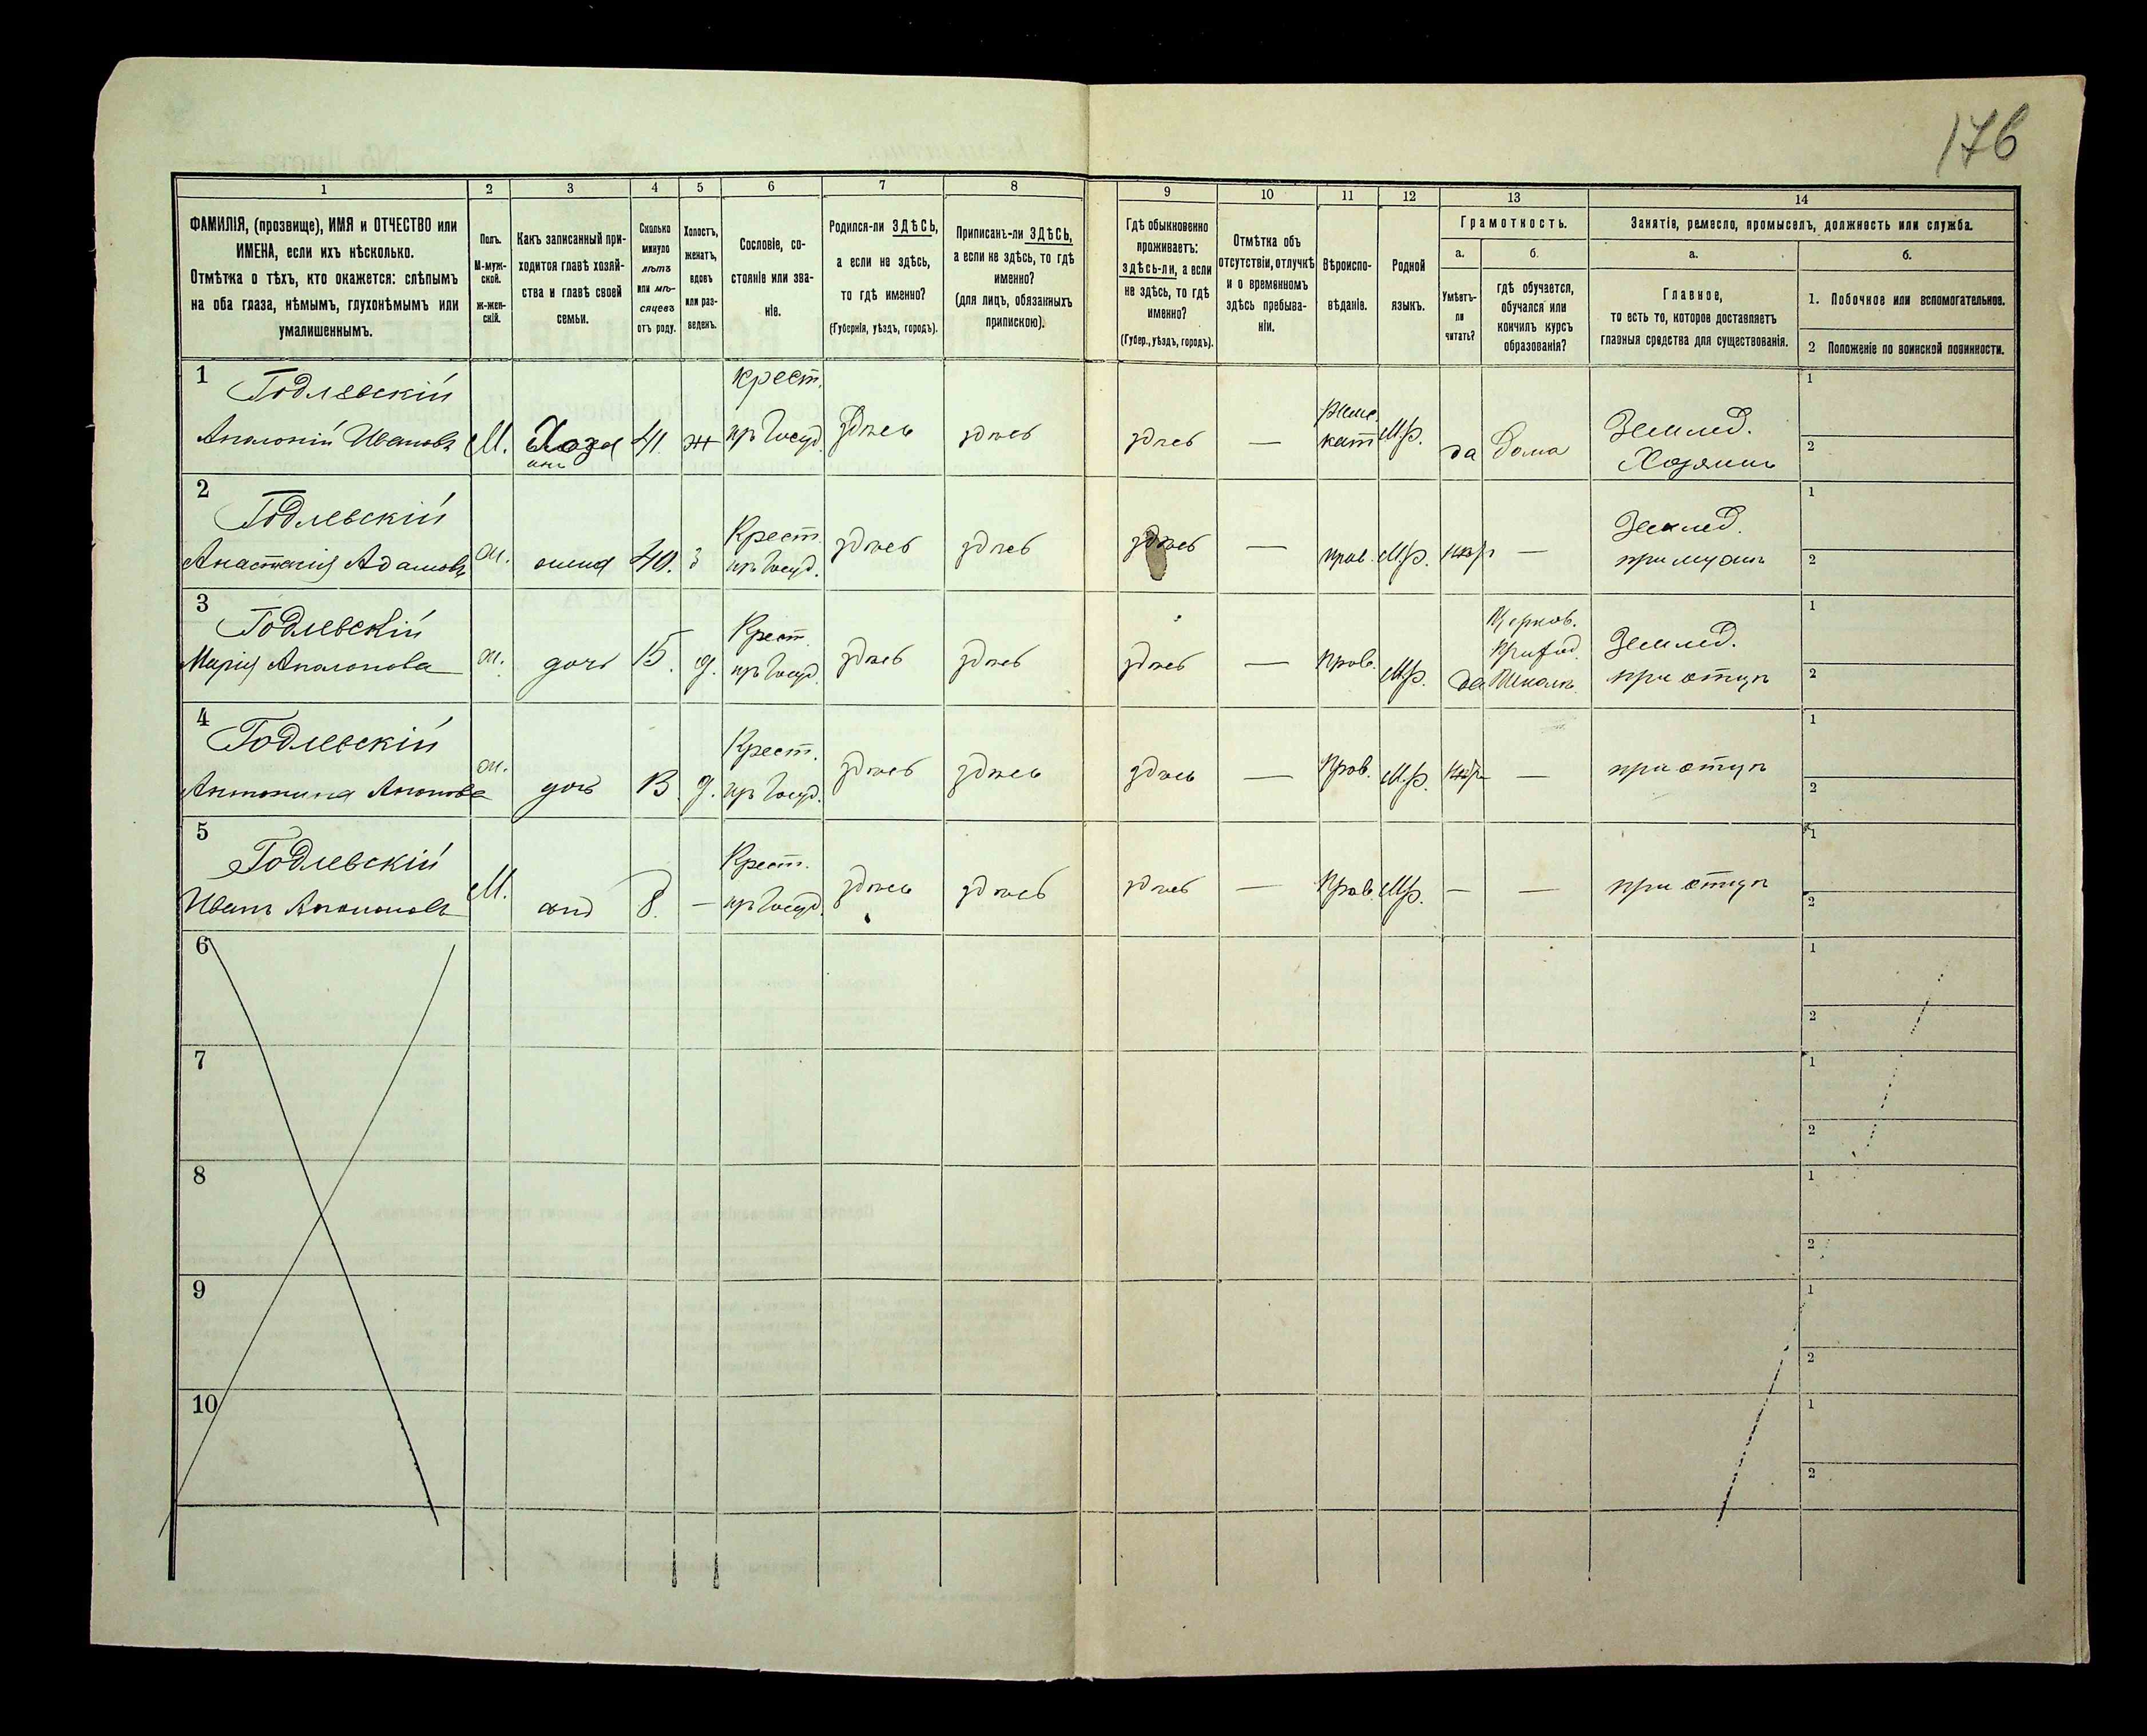 176
1 2 3 4 5 6 7 8 9 10 11 12 13 14
ФАМИЛІЯ, (прозвище), ИМЯ и ОТЧЕСТВО или
ИМЕНА, если ихъ нѣсколько.
Отмѣтка о тѣхъ, кто окажется: слѣпымъ
на оба глаза, нѣмымъ, глухонѣмымъ или
умалишеннымъ.
Полъ.
М-муж-
ской.
ж-жен-
скій.
Какъ записанный при-
ходится главѣ хозяй-
ства и главѣ своей
семьи.
Сколько
минуло
лѣтъ
или мѣ-
сяцевъ
отъ роду.
Холостъ,
женатъ,
вдовъ
или раз-
веденъ.
Сословіе, со-
стояніе или зва-
ніе.
Родился-ли ЗДѢСЬ,
а если не здѣсь,
то гдѣ именно?
(Губернія, уѣздъ, городъ).
Приписанъ-ли ЗДѢСЬ,
а если не здѣсь, то гдѣ
именно?
(для лицъ, обязанныхъ
припискою).
Гдѣ обыкновенно
проживаетъ:
здѣсь-ли, а если
не здѣсь, то гдѣ
именно?
(Губер., уѣздъ, городъ).
Отмѣтка объ
отсутствіи, отлучкѣ
и о временномъ
здѣсь пребыва-
ніи.
Вѣроиспо-
вѣданіе.
Родной
языкъ.
Грамотность.
а.
Умѣетъ-
ли
читать?
б.
гдѣ обучается,
обучался или
кончилъ курсъ
образованія?
Занятіе, ремесло, промыселъ, должность или служба.
а.
Главное,
то есть то, которое доставляетъ
главныя средства для существованія.
б.
1. Побочное или вспомогательное.
2 Положеніе по воинской повинности.
1 Годлевскій крест. 1
Аполоній Ивановъ М. Хозя 41 ж пр Госуд. Здѣсь здѣсь здѣсь — кат М.р. да Дома Землед.
инъ Хозяинъ 2
2 Годлевскій Крест. Землед. 1
Анастасія Адамова ж. жена 40. з пр Госуд. здѣсь здѣсь здѣсь — прав. М.р. — при мужѣ 2
3 Годлевскій Крест. Церков. Землед. 1
Приход.
Марія Аполонова ж. дочь 15. д. пр Госуд. здѣсь здѣсь здѣсь — прав. М.р. да Школѣ. при отцѣ 2
4 Годлевскій Крест. 1
Антонина Апонова ж. дочь 13 д. пр Госуд. здѣсь здѣсь здѣсь — Прав. М.р. — при отцѣ 2
5 Годлевскій Крест. 1
Иванъ М. 8. — пр Госуд. здѣсь здѣсь здѣсь — Прав. М.р. — — при отцѣ 2
6 1
2
7 1
2
8 1
2
9 1
2
10 1
2